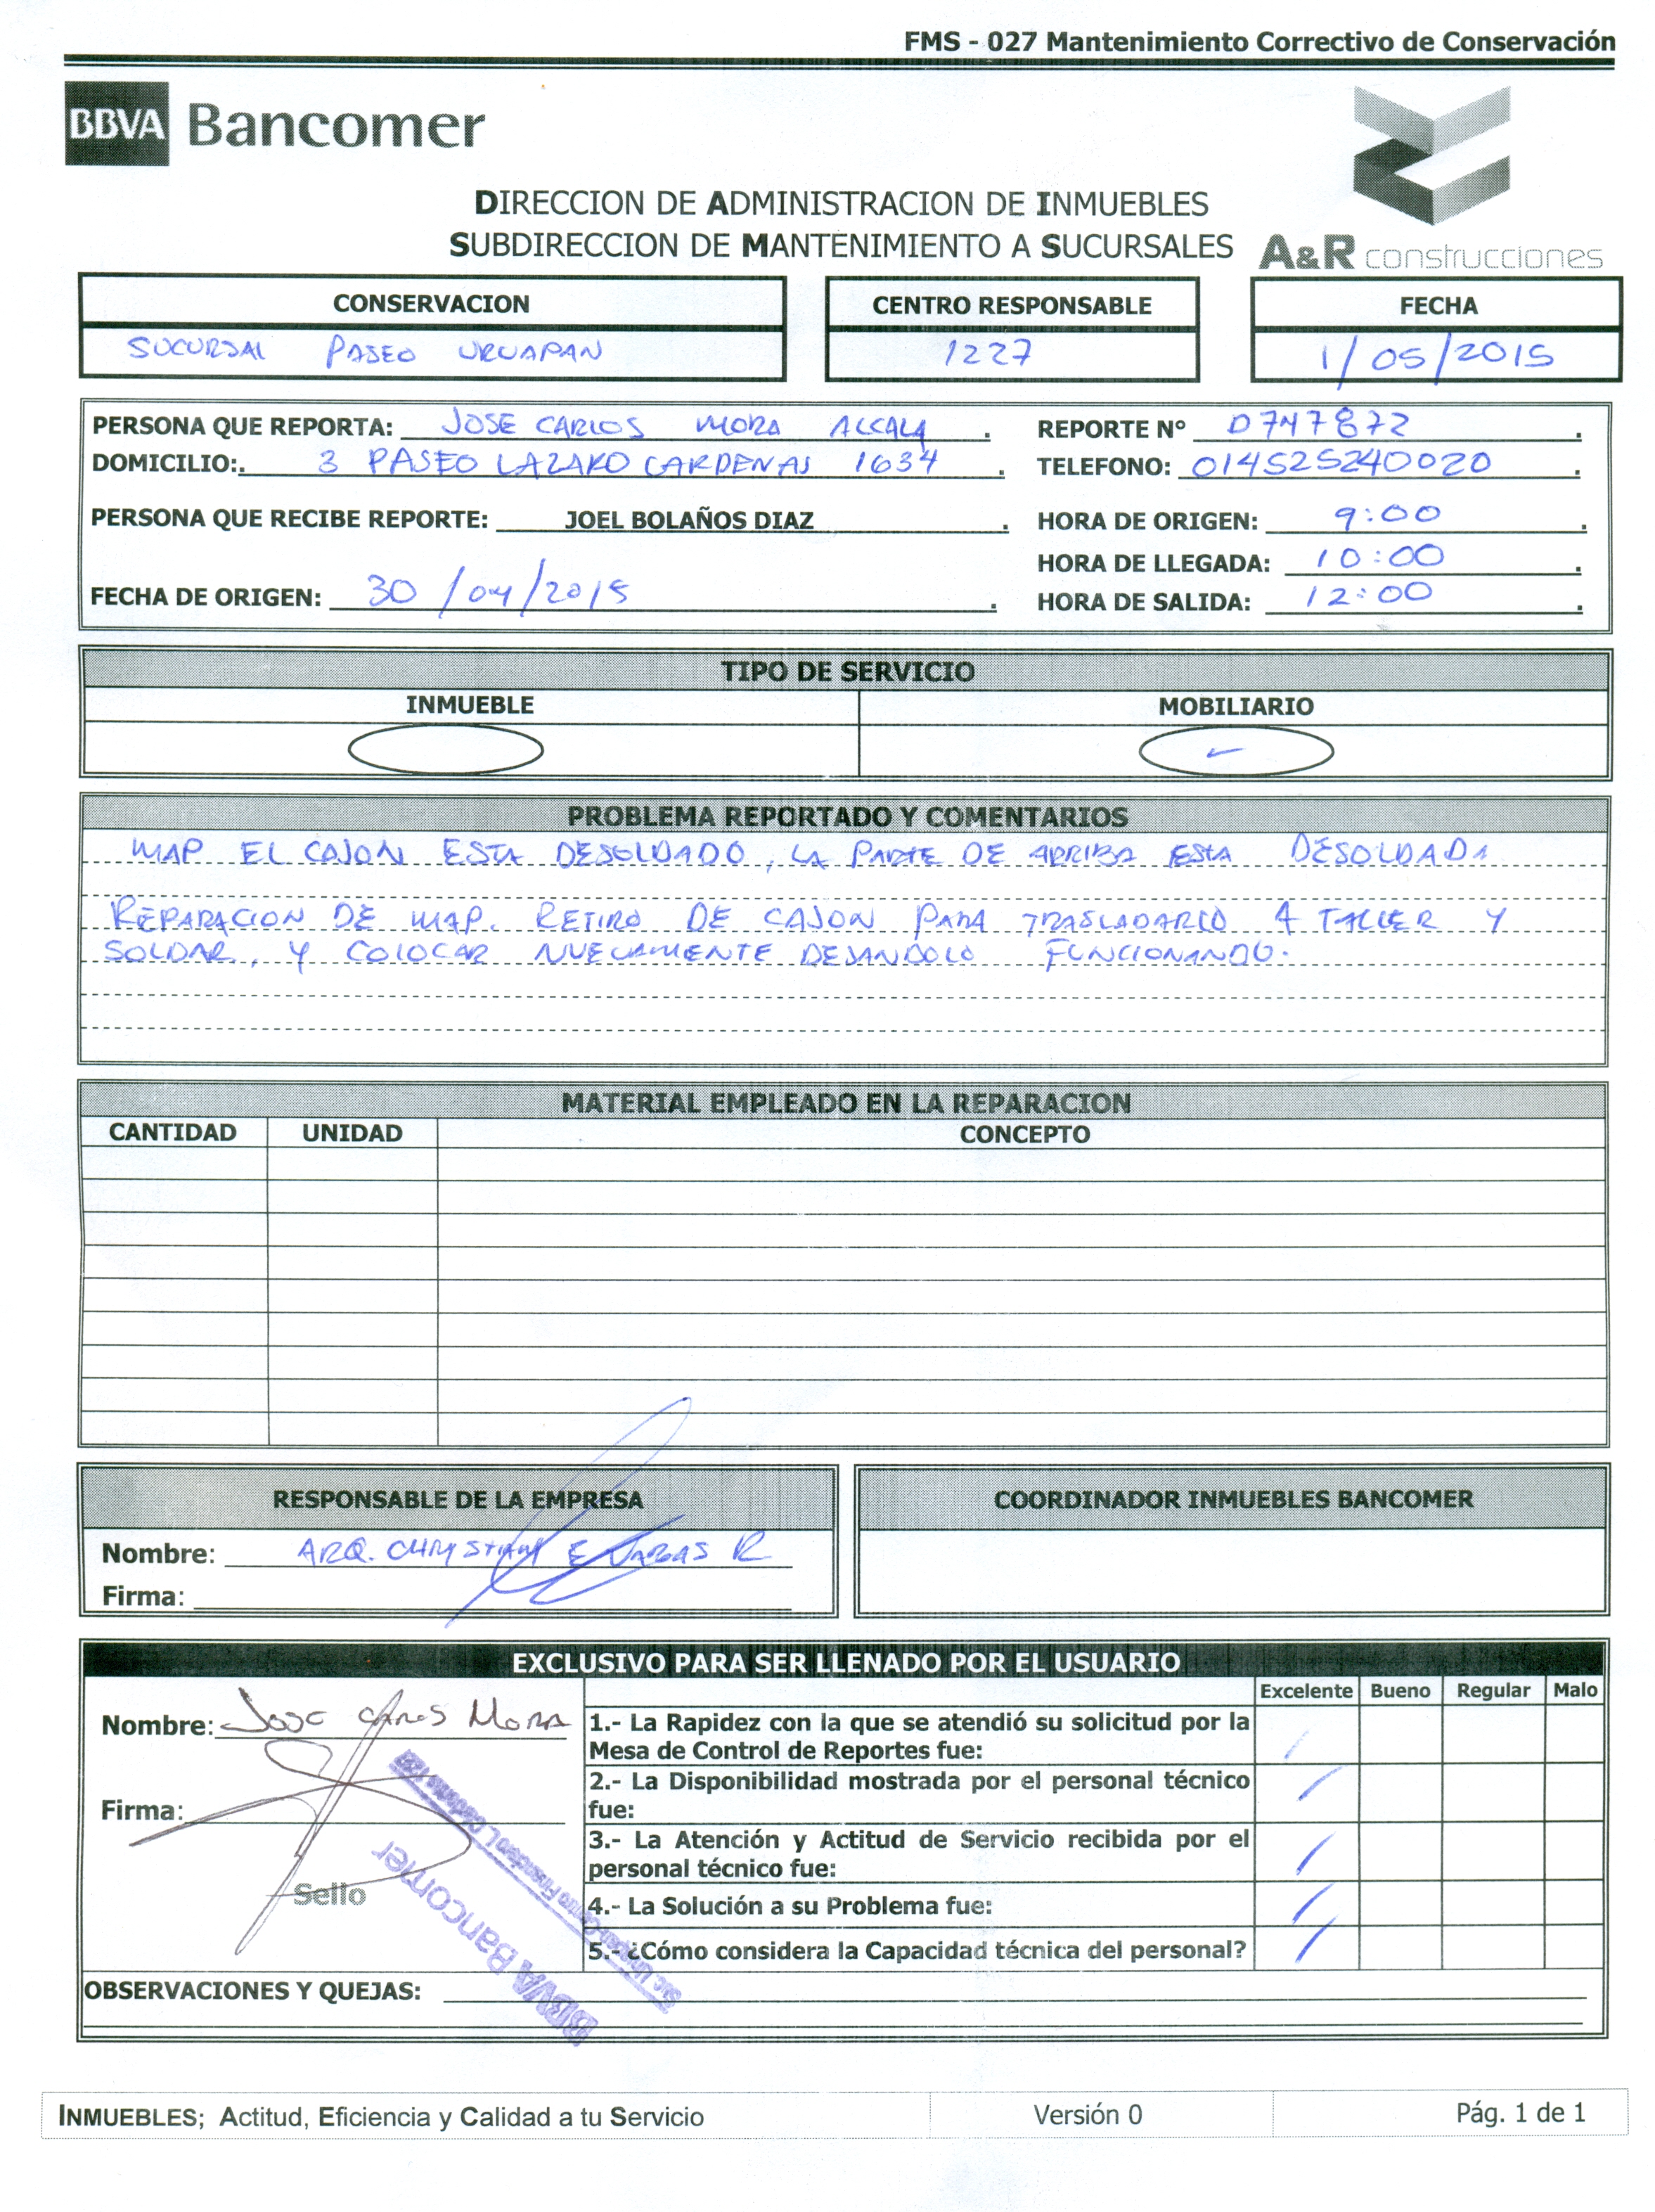 FMS - 027 Mantenimiento Correctivo de Conservación
BBVA Bancomer
DIRECCION DE ADMINISTRACION DE INMUEBLES
SUBDIRECCION DE MANTENIMIENTO A SUCURSALES
A&R construcciones
CONSERVACION
SUCURSAL PASEO URUAPAN
CENTRO RESPONSABLE
1227
FECHA
1/05/2015
PERSONA QUE REPORTA: JOSE CARLOS MORA ALCALA.
REPORTE N° 0747872.
DOMICILIO:. 3 PASEO LAZARO CARDENAS 1634.
TELEFONO: 014525240020.
PERSONA QUE RECIBE REPORTE: JOEL BOLAÑOS DIAZ.
HORA DE ORIGEN: 9:00.
HORA DE LLEGADA: 10:00.
FECHA DE ORIGEN: 30/04/2015.
HORA DE SALIDA: 12:00.
TIPO DE SERVICIO
INMUEBLE MOBILIARIO
PROBLEMA REPORTADO Y COMENTARIOS
MAP EL CAJON ESTA DESOLDADO, LA PARTE DE ARRIBA ESTA DESOLDADA
REPARACION DE MAP. RETIRO DE CAJON PARA TRASLADARLO A TALLER Y
SOLDAR, Y COLOCAR NUEVAMENTE DEJANDOLO FUNCIONANDO.
MATERIAL EMPLEADO EN LA REPARACION
CANTIDAD UNIDAD CONCEPTO
RESPONSABLE DE LA EMPRESA
Nombre: ARQ. CHRYSTIAN E VARGAS R
Firma:
COORDINADOR INMUEBLES BANCOMER
EXCLUSIVO PARA SER LLENADO POR EL USUARIO
Nombre: JOSE CARLOS MORA
Firma:
Sello
BBVA Bancomer
Excelente Bueno Regular Malo
1.- La Rapidez con la que se atendió su solicitud por la
Mesa de Control de Reportes fue:
2.- La Disponibilidad mostrada por el personal técnico
fue:
3.- La Atención y Actitud de Servicio recibida por el
personal técnico fue:
4.- La Solución a su Problema fue:
5.- ¿Cómo considera la Capacidad técnica del personal?
OBSERVACIONES Y QUEJAS:
INMUEBLES; Actitud, Eficiencia y Calidad a tu Servicio
Versión 0
Pág. 1 de 1